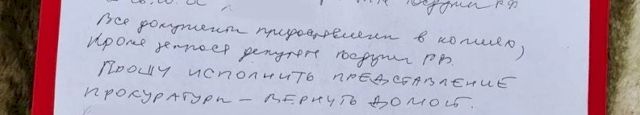 Все документы предоставлены в копиях,
Кроме запроса депутата Госдумы РФ.
Прошу исполнить представление
прокуратуры – вернуть домой.